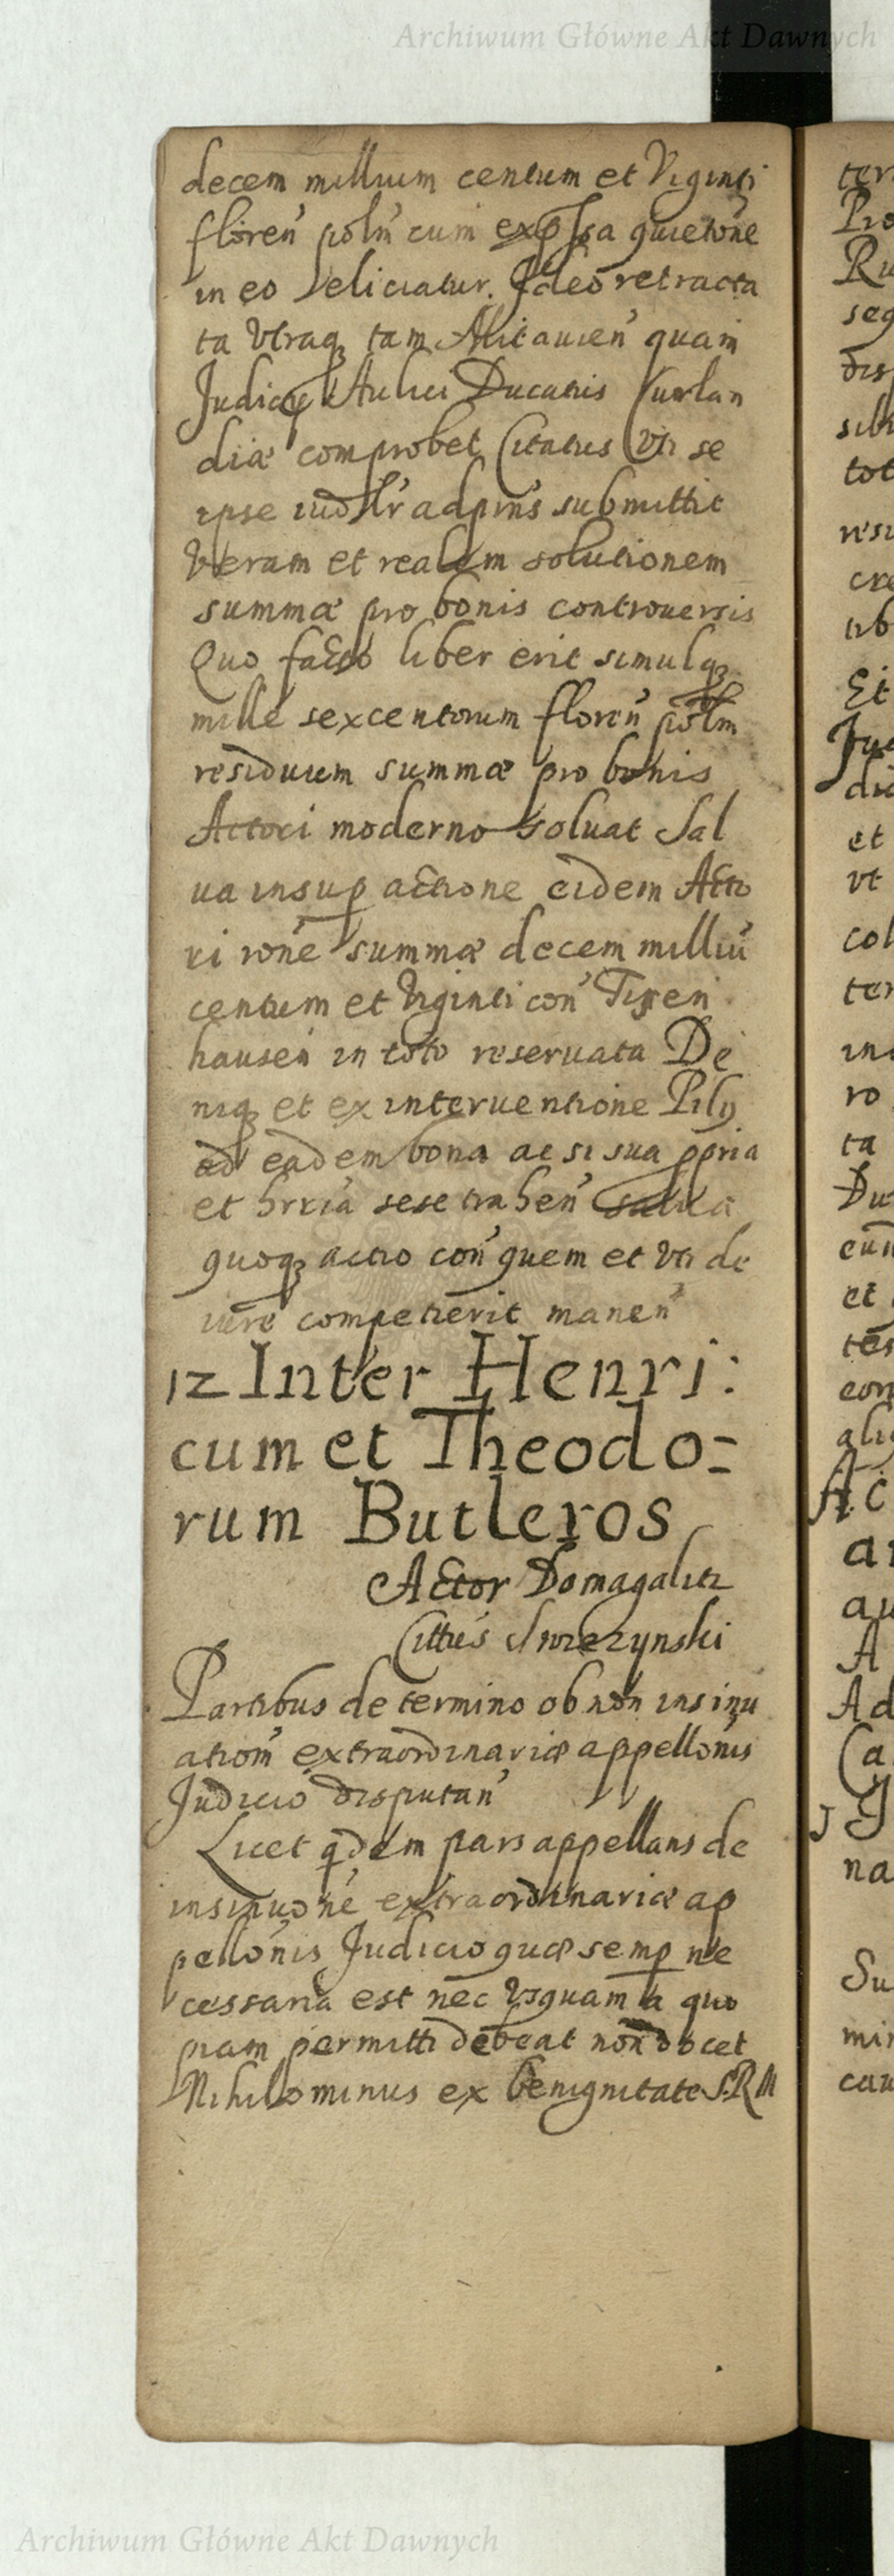 Archiwum Główne Akt Dawnych
decem millium centum et Viginti
floren' poln' cum exp̃ssa quieto̅ne
in eo eliciatur. Ideo retracta
ta Vtraq; tam Mitauien' quam
Judicij Aulici Ducatus Curlan
diæ comprobet Citatus Vti se
ipse iud̅ lr̅ ad p̅ns submittit
Veram et realem solutionem
summæ pro bonis controuersis
Quo facto liber erit simulq;
mille sexcentorum floren' poln
residuum summæ pro bonis
Actori moderno soluat Sal
ua insup actione eidem Acto
ri ro̅ne summæ decem milliu̅
centum et Viginti con' Tisen
hausen in toto reseruata De
niq; et ex interuentione Pilij
ad eadem bona ac si sua ppria
et hrria sese trahen' salua
quoq; actio con' quem et vti de
iure competierit manen'
12 Inter Henri:
cum et Theodo=
rum Butleros
Actor Domagalicz
Cittus Swierzynski
Partibus de termino ob non insinu
ation' extraordinariæ appello̅nis
Judicio disputan'
Licet qdem pars appellans de
insinuo̅ne extraordinariæ ap
pello̅nis Judicio quæ semp ne
cessaria est nec Vsquam a quo
piam permitti debeat non docet
Nihilominus ex benignitate S.R.M
ter
Pro
Ru
seq
dis
silu
tot
resi
cre
ub
Et
Jud
diæ
et
vt
col
ter
in
ro
ta
Du
cun
et
tes
con
aliq
Ac
an
au
A
Ad
Ca
na
Su
min
cau
Archiwum Główne Akt Dawnych